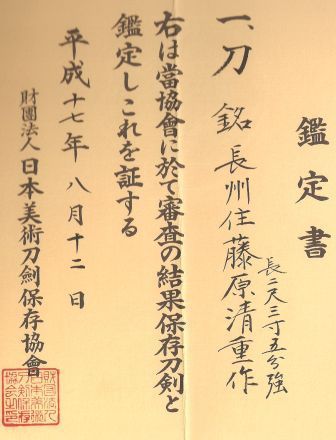 鑑定書
一、刀 銘 長州住藤原清重作
長二尺三寸五分強
右は當協會に於て審査の結果保存刀剣と
鑑定しこれを証する
平成十七年八月十二日
財團法人日本美術刀劍保存協會